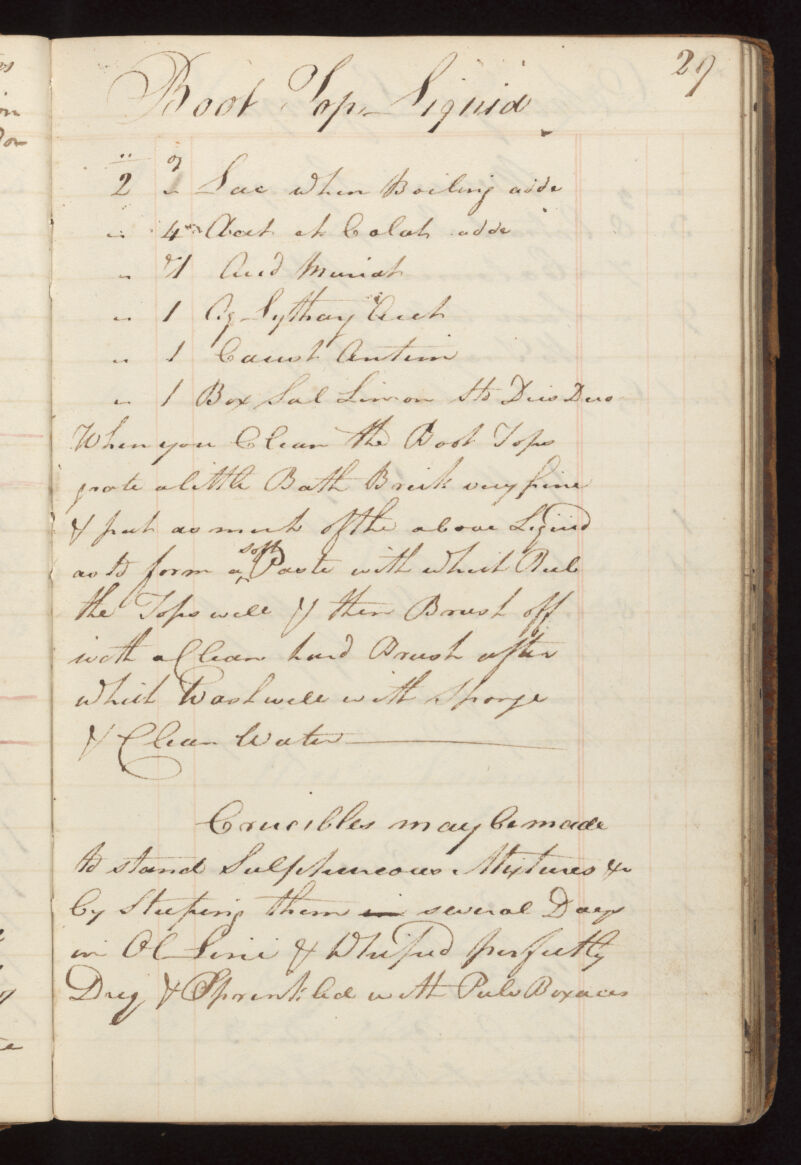 29
Boot Top Liquid
2 " Lac when Boiling add
" 4 Acet et Colat add
" 1 Acid Muriat
" 1 Aq Lythargi Acet
" 1 Caust Antim
" 1 Box Sal Limon
When you Clean the Boot Tops
grate a little Bath Brick very fine
& put as much of the above Liquid
as to form a soft Paste with which Rub
the Tops well & then Brush off
with a Clean hard Brush after
which Wash well with Sponge
& Clean Water
Crucibles may be made
to stand Sulphureous Mixtures &c
by Steeping them in several Days
in Ol Lini & Whiped perfectly
Drey & Sprinkled with Pulv Boraces